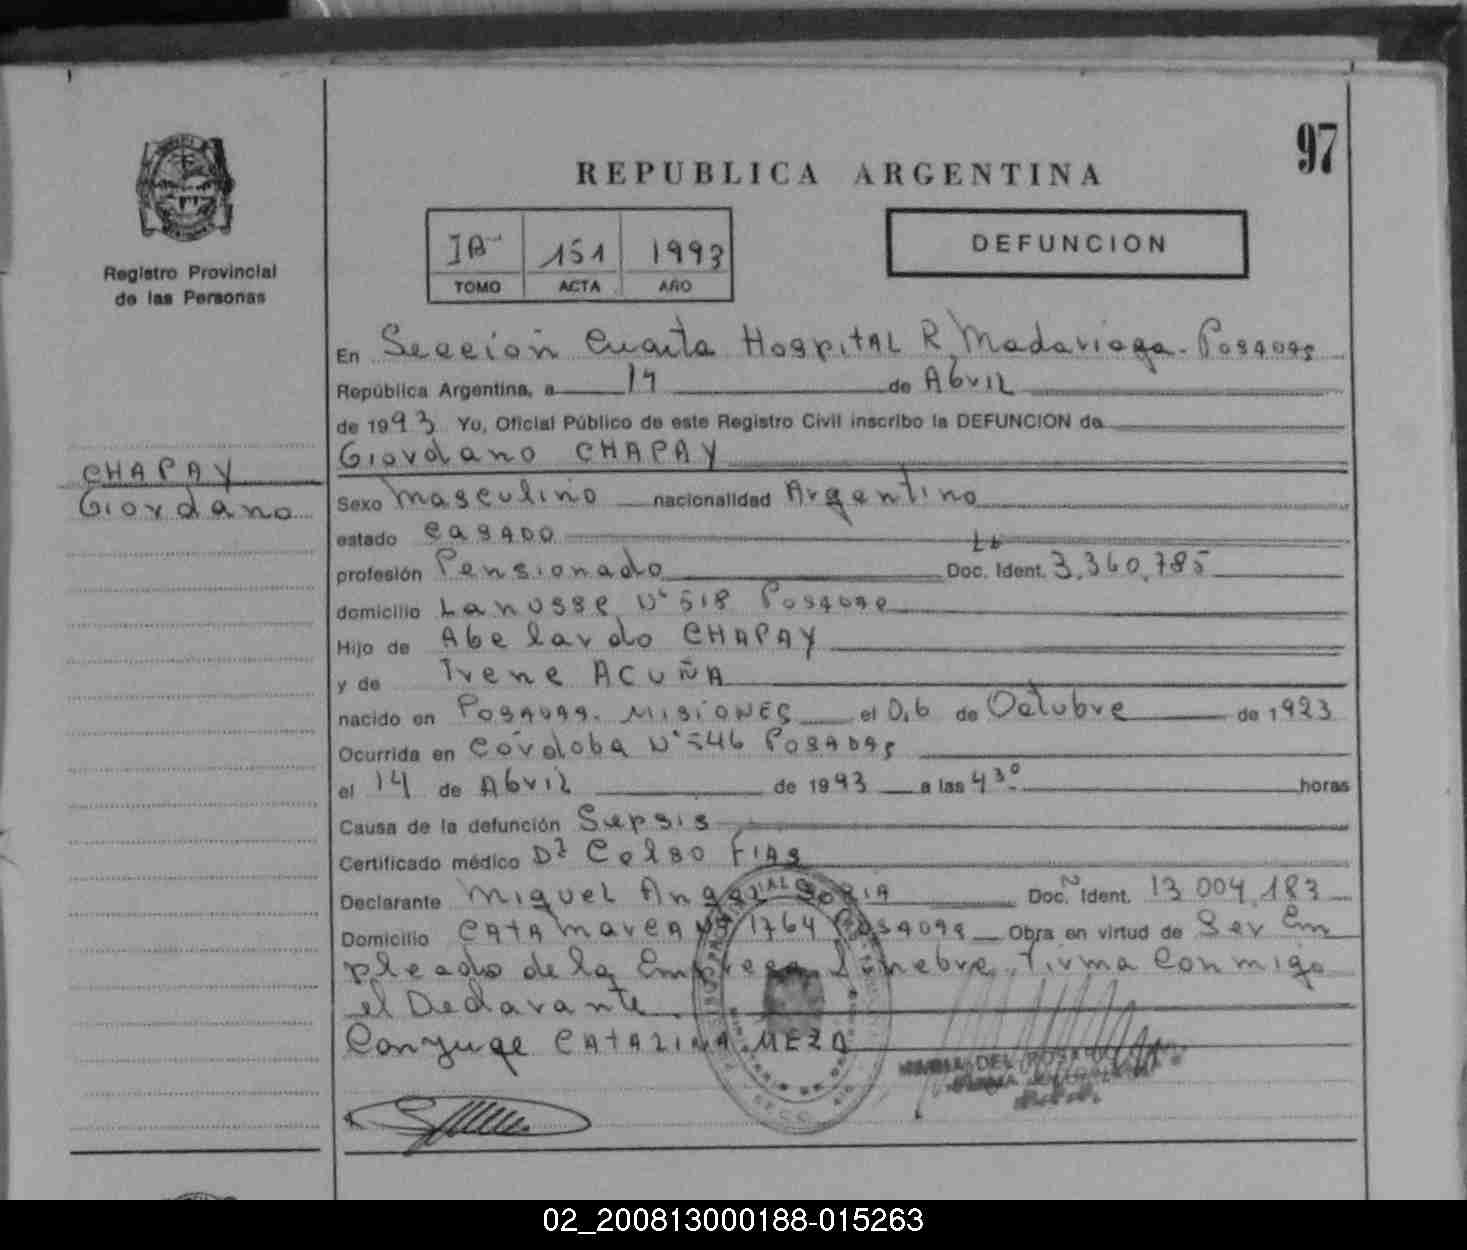 97
REPUBLICA ARGENTINA
151 1993
DEFUNCION
TOMO ACTA AÑO
Registro Provincial
de las Personas
En Sección Cuarta Hospital R. Madariaga - Posadas
República Argentina, a 14 de Abril
de 1993 Yo, Oficial Público de este Registro Civil inscribo la DEFUNCION de
Giordano CHAPAY
CHAPAY
Giordano
Sexo Masculino nacionalidad Argentino
estado casado
profesión Pensionado Doc. Ident. 3.360.785
domicilio Lanusse Nº 518 Posadas
Hijo de Abelardo CHAPAY
y de Irene ACUÑA
nacido en Posadas. Misiones el 06 de Octubre de 1923
Ocurrida en Córdoba Nº 546 Posadas
el 14 de Abril de 1993 a las 4 30 horas
Causa de la defunción Sepsis
Certificado médico Dr Celso Fias
Declarante Miguel Angel SORIA Doc. Ident. 13 004.183
Domicilio Catamarca Nº 1764 Posadas Obra en virtud de Ser Em
pleado de la Empresa Fúnebre. Firma Conmigo
el Declarante.
Conyuge CATALINA MEZA
02_200813000188-015263